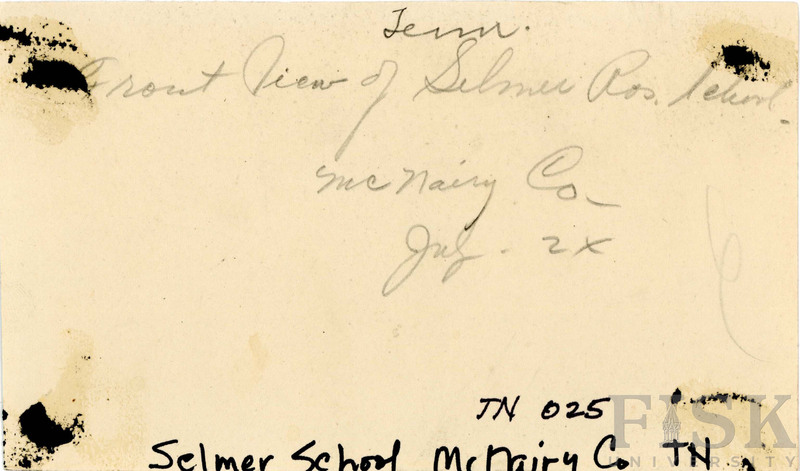 Tenn.
Front View of Selmer Ros. School.
McNairy Co
July - 2X
TN 025
FISK
UNIVERSITY
Selmer School McNairy Co TN